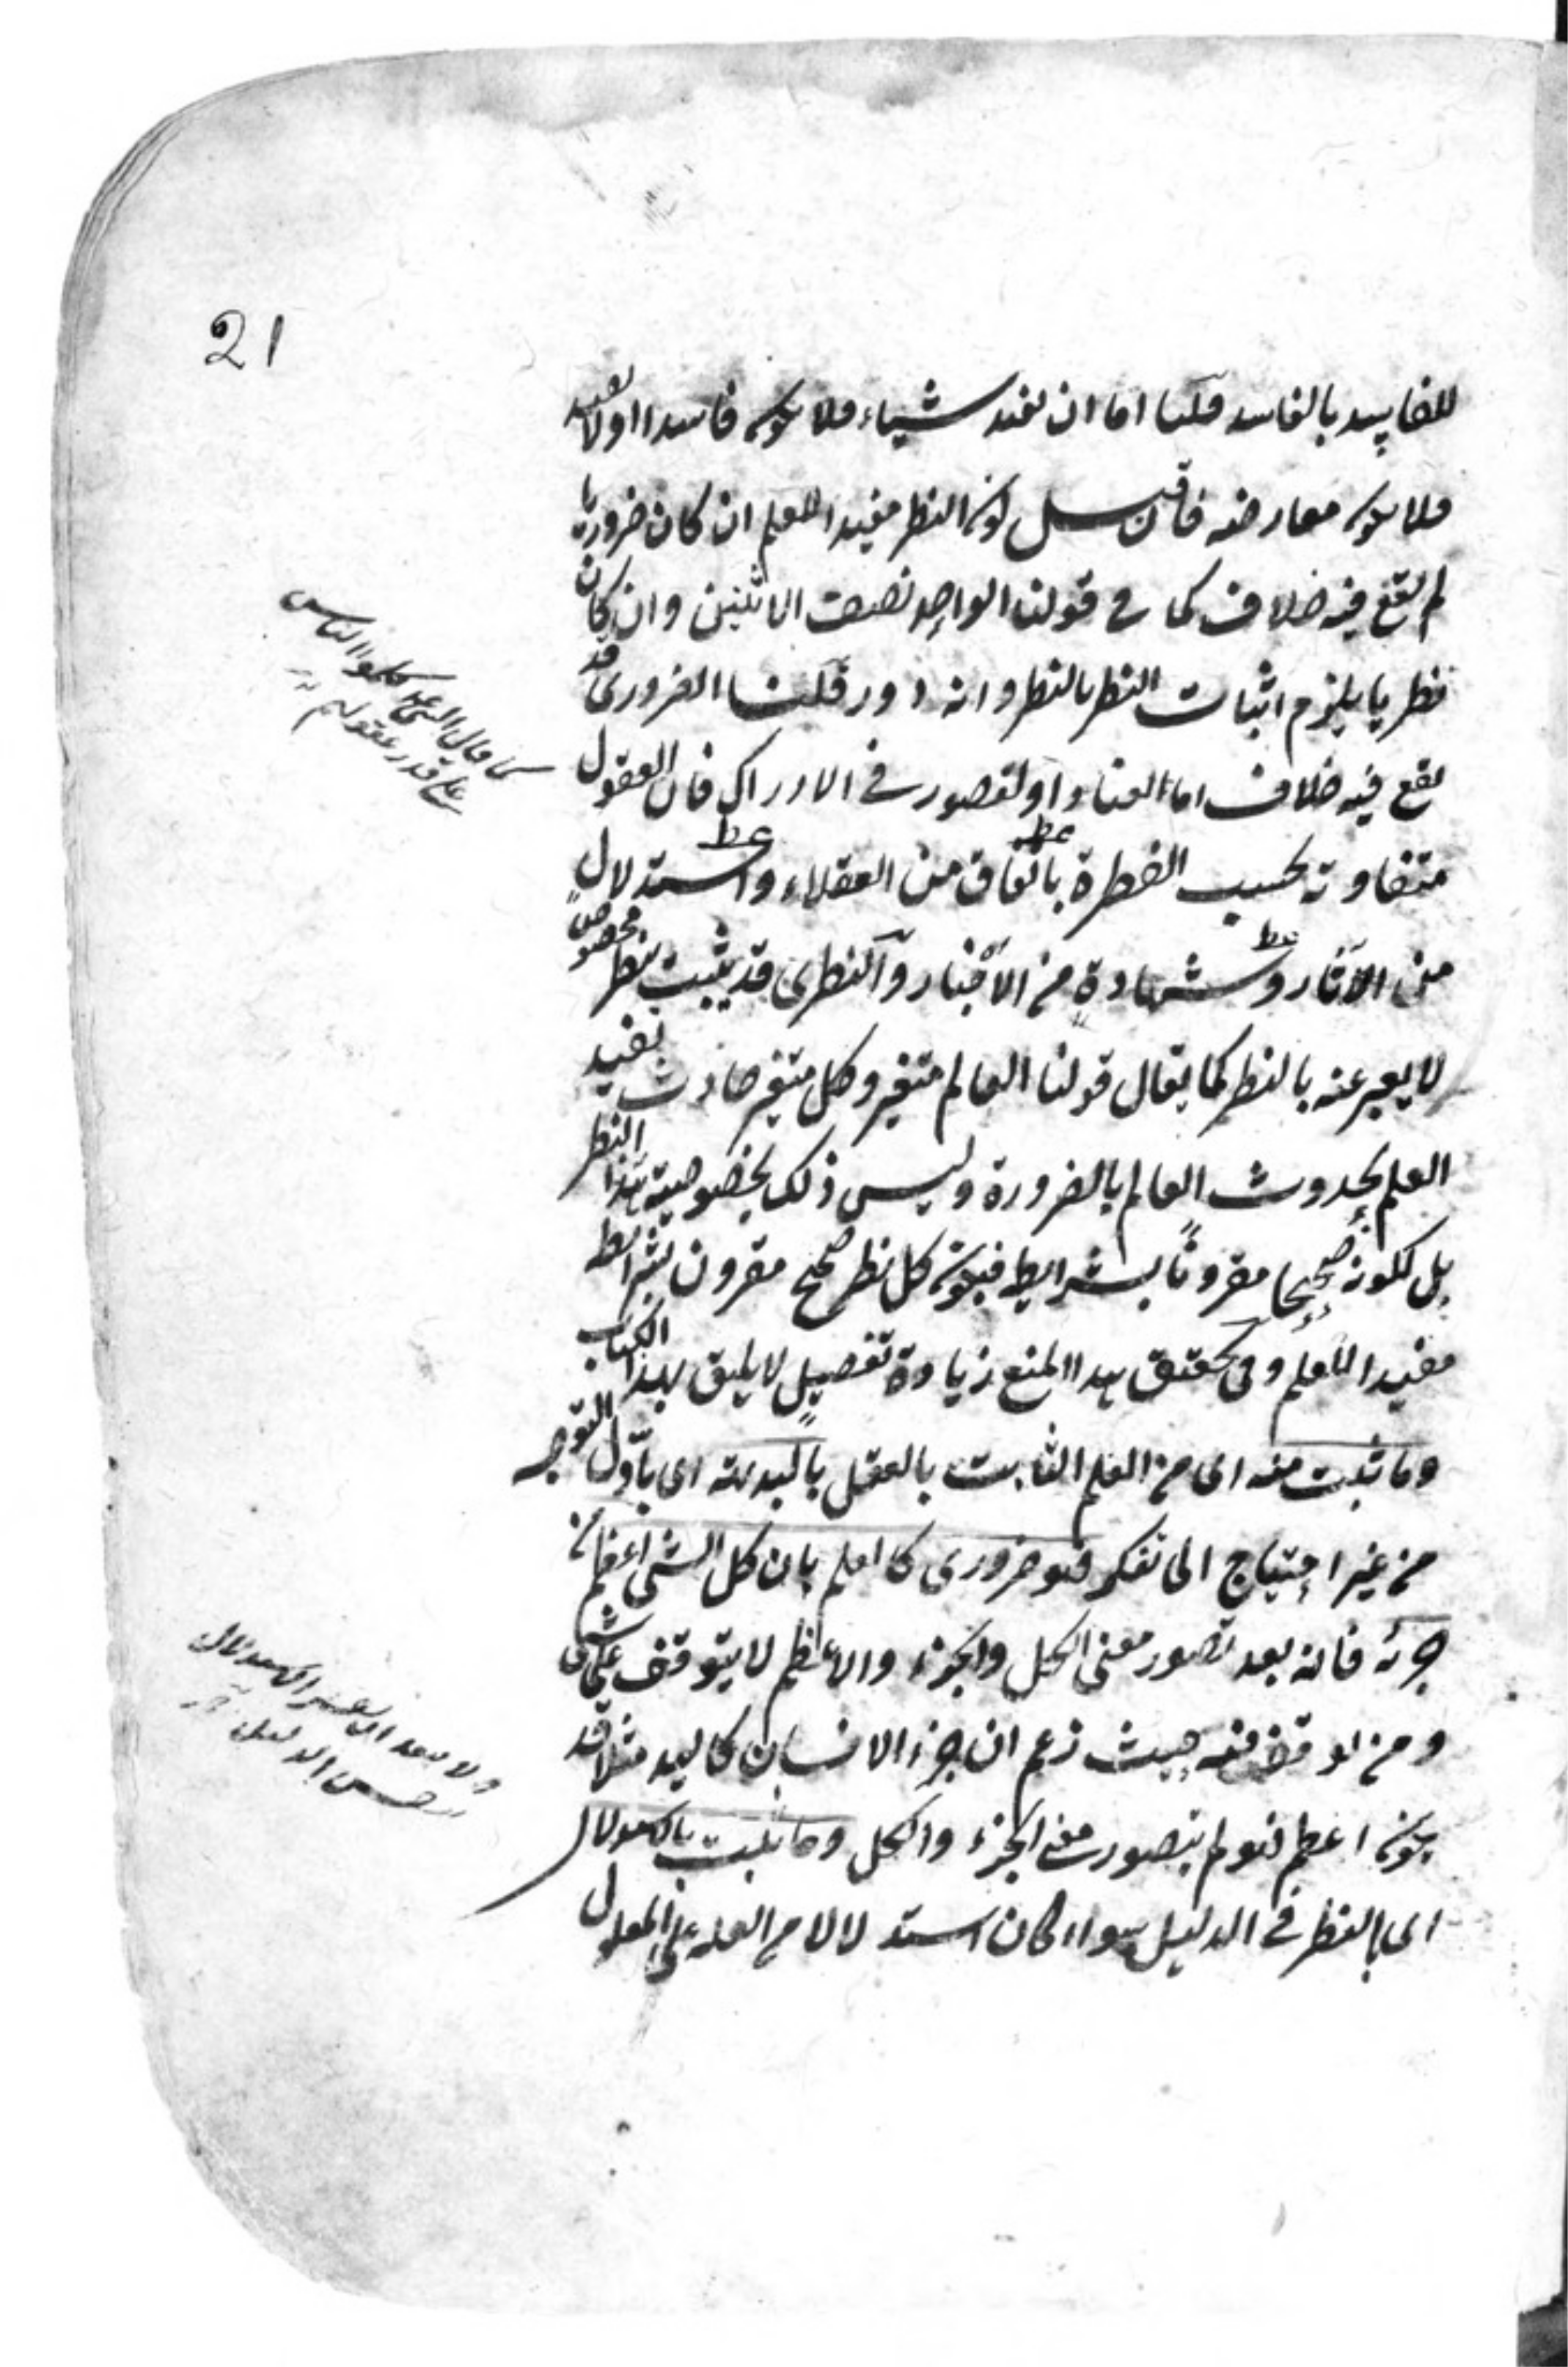 21
للفاسد بالفاسد قلنا اما ان يفيد شيأ، فلا يكون فاسدا اولا يفيد
فلا يكون معارضه فان قيل كون النظر مفيدا للعلم ان كان ضروريا
لم يقع فيه خلاف كما في قولنا الواحد نصف الاثنين وان كان
نظريا يلزم اثبات النظر بالنظر وانه دور قلنا الضرورى قد
يقع فيه خلاف اما لعناد او لقصور في الادراك فان العقول
متفاوتة بحسب الفطرة باتفاق من العقلاء واستدلال
عط عط
من الآثار وشهادة من الاخبار والنظرى قد يثبت بنظر مخصوص
عط
لا يعبر عنه بالنظر كما يقال قولنا العالم متغير وكل متغير حادث يفيد
العلم بحدوث العالم بالضرورة وليس ذلك بخصوصية هذا النظر
بل لكونه صحيحا مقرونا بشرايطه فيكون كل نظر صحيح مقرون بشرايطه
مفيدا للعلم وفى تحقيق هذا المنع زيادة تفصيل لا يليق بهذا الكتاب
وما ثبت منه اى من العلم الثابت بالعقل بالبديهة اى باول التوجه
من غير احتياج الى تفكر فهو ضرورى كالعلم بان كل الشئ اعظم من
جزئه فانه بعد تصور معنى الكل والجزء والاعظم لا يتوقف على شئ
ومن توقف فيه حيث زعم ان جزء الانسان كاليد مثلا قد
يكون اعظم فهو لم يتصور معنى الجزء والكل وما ثبت بالاستدلال
اى بالنظر في الدليل سواء كان استدلالا من العلة على المعلول
كما قال النبى عم كلموا الناس
على قدر عقولهم